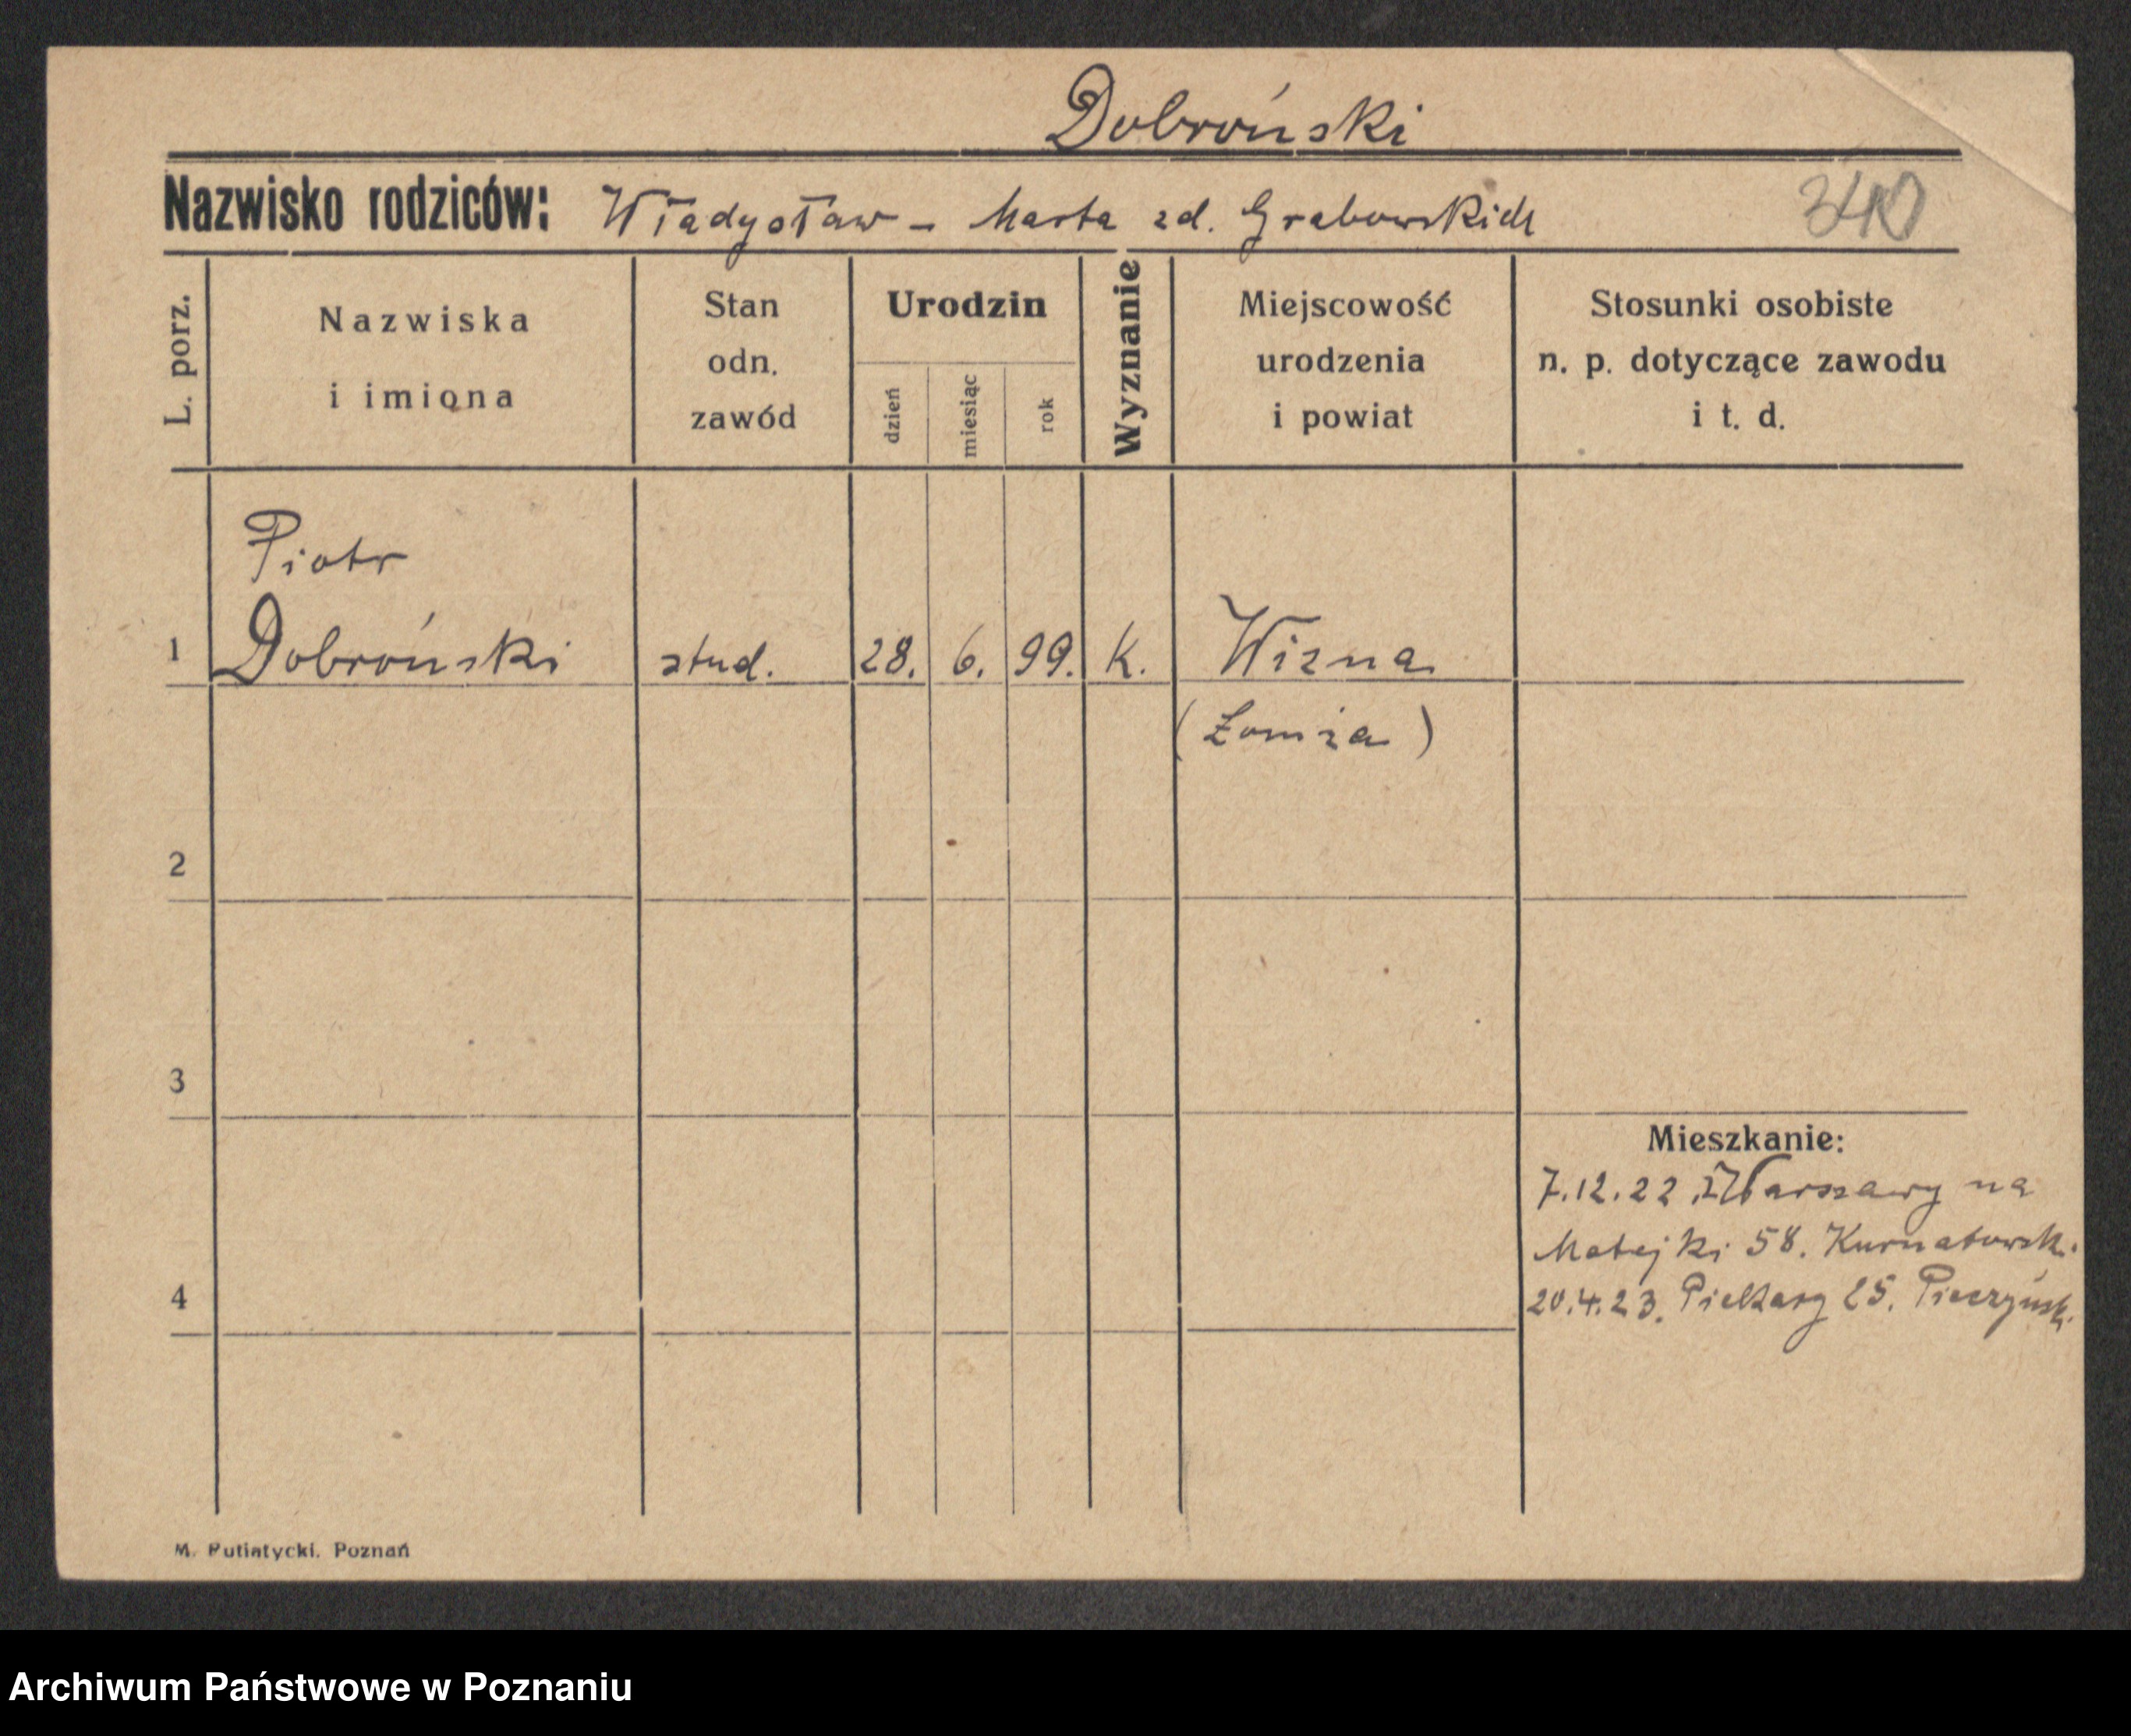 Dobroński
Nazwisko rodziców: Władysław - Marta zd. Grabowskich
340
L. porz.
Nazwiska
i imiona
Stan
odn.
zawód
Urodzin
dzień
miesiąc
rok
Wyznanie
Miejscowość
urodzenia
i powiat
Stosunki osobiste
n. p. dotyczące zawodu
i t. d.
Piotr
1 Dobroński stud. 28. 6. 99. k. Wizna
(Łomża)
2
3
Mieszkanie:
7.12.22 z Warszawy na
Matejki 58. Kurnatowsk.
4
20.4.23. Piekary 25. Pieczyńsk.
M. Putiatycki. Poznań
Archiwum Państwowe w Poznaniu